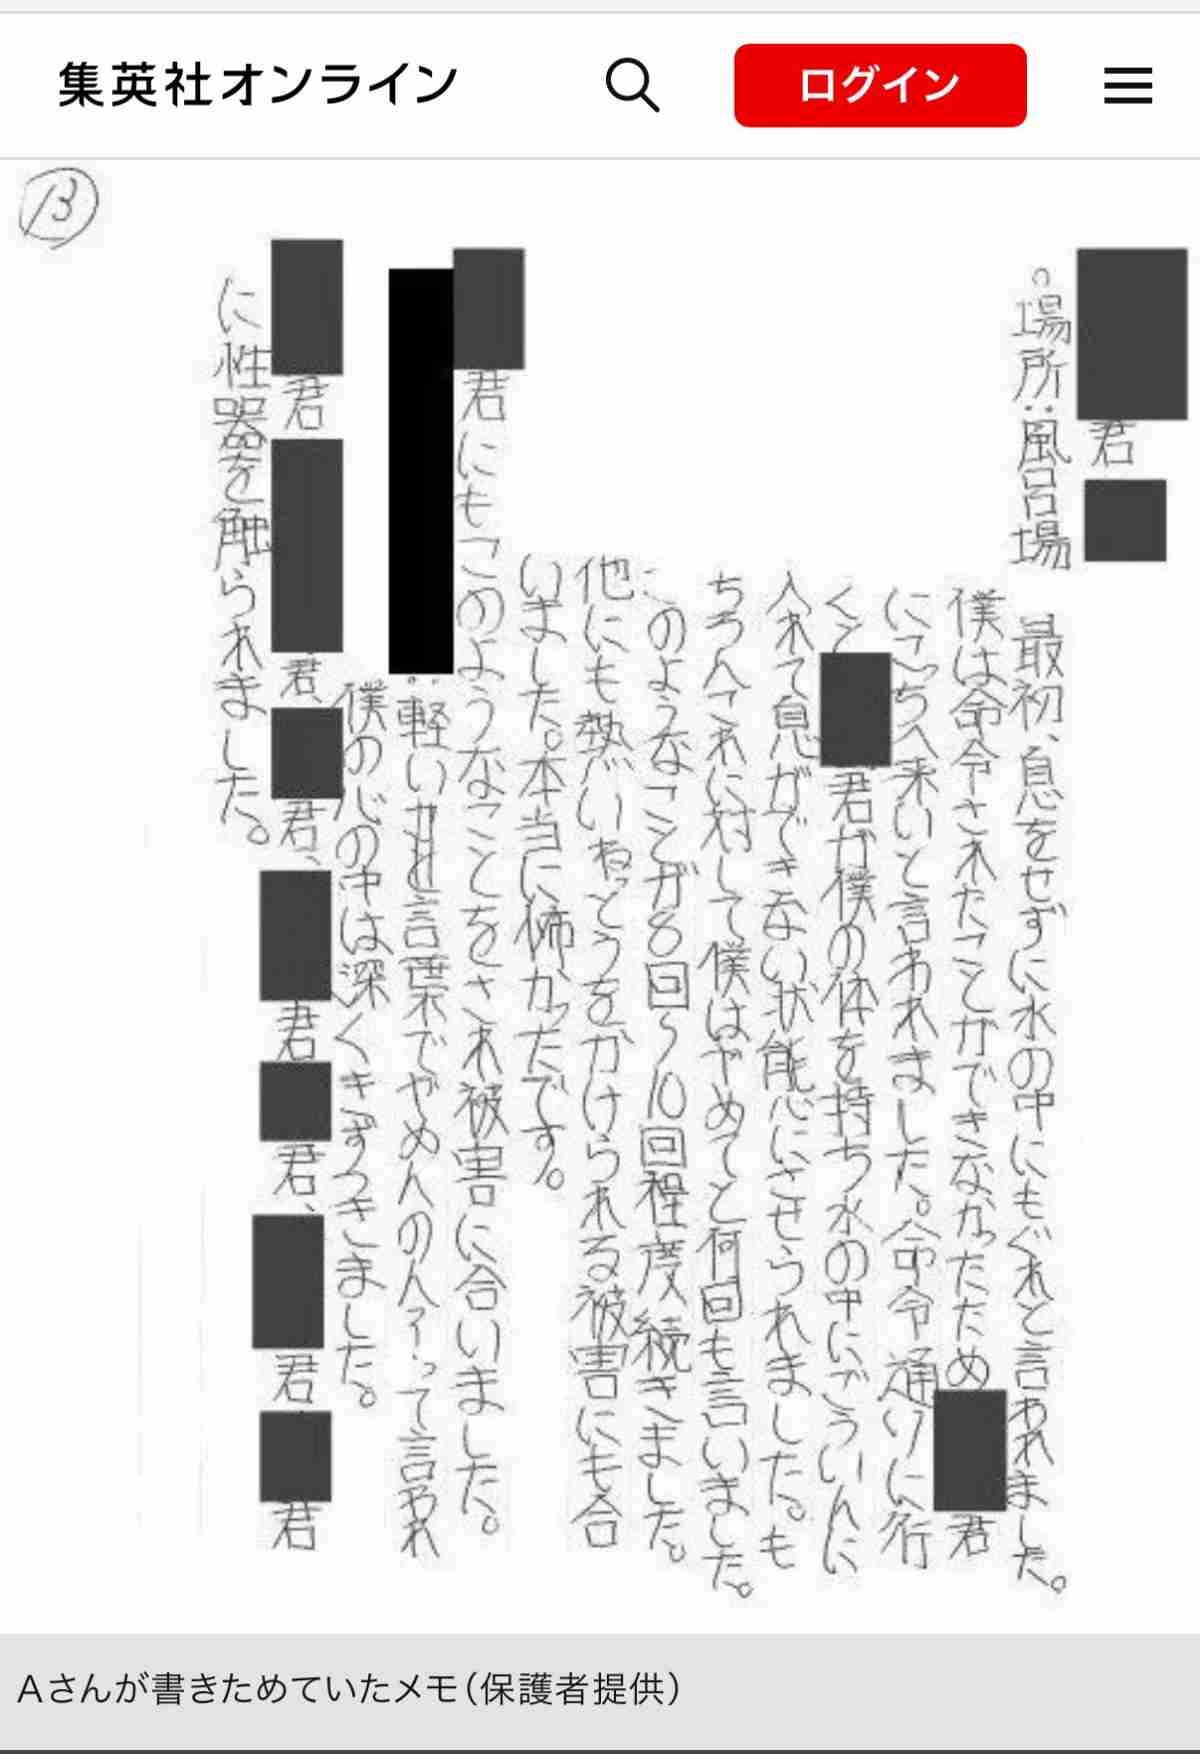 集英社オンライン
ログイン
13
君
。場所：風呂場
最初、息をせずに水の中にもぐれと言われました。
僕は命令されたことができなかったため
君
にこっちへ来いと言われました。命令通りに行
くと
君が僕の体を持ち水の中にごういんに
入れて息ができない状態にさせられました。も
ちろんこれに対して僕はやめてと何回も言いました。
このようなことが8回〜10回程度続きました。
他にも熱いねっとうをかけられる被害にも合
いました。本当に怖かったです。
君にもこのようなことをされ被害に合いました。
：軽い
言葉でやめんのん？って言われ
僕の心の中は深くきずつきました。
君
君、
君、
君
君、
君
君
に性器を触られました。
Aさんが書きためていたメモ（保護者提供）